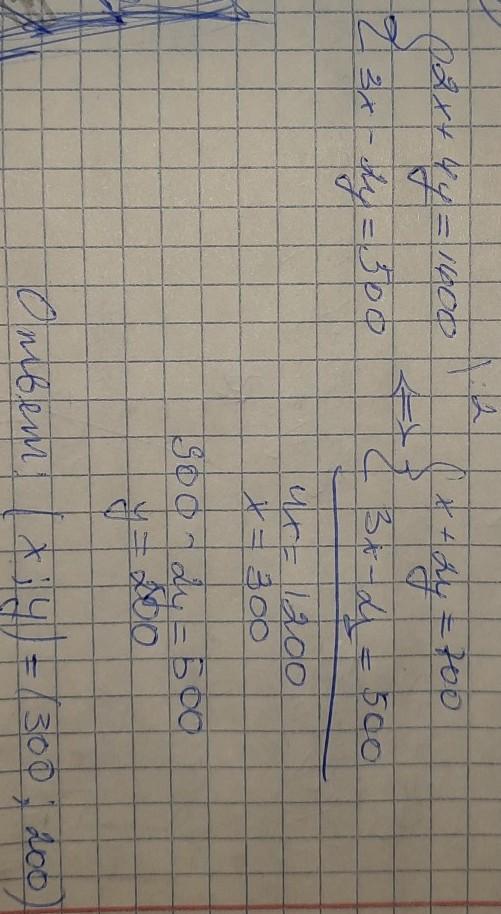 { 2x + 4y = 1400 | :2
{ 3x - 2y = 500
⇔
{ x + 2y = 700
{ 3x - 2y = 500
4x = 1200
x = 300
900 - 2y = 500
y = 200
Ответ: (x; y) = (300; 200)